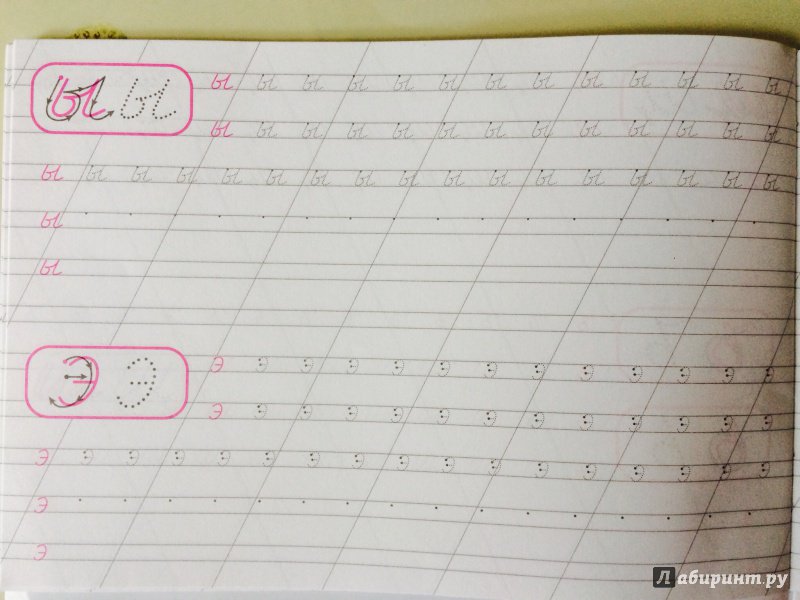 ы ы
ы ы ы ы ы ы ы ы ы ы ы ы ы
ы ы ы ы ы ы ы ы ы ы ы ы ы
ы ы ы ы ы ы ы ы ы ы ы ы ы ы ы ы ы
ы
ы
э э
э э э э э э э э э э э э э
э э э э э э э э э э э э э
э э э э э э э э э э э э э э э э э
э
э
Лабиринт.ру